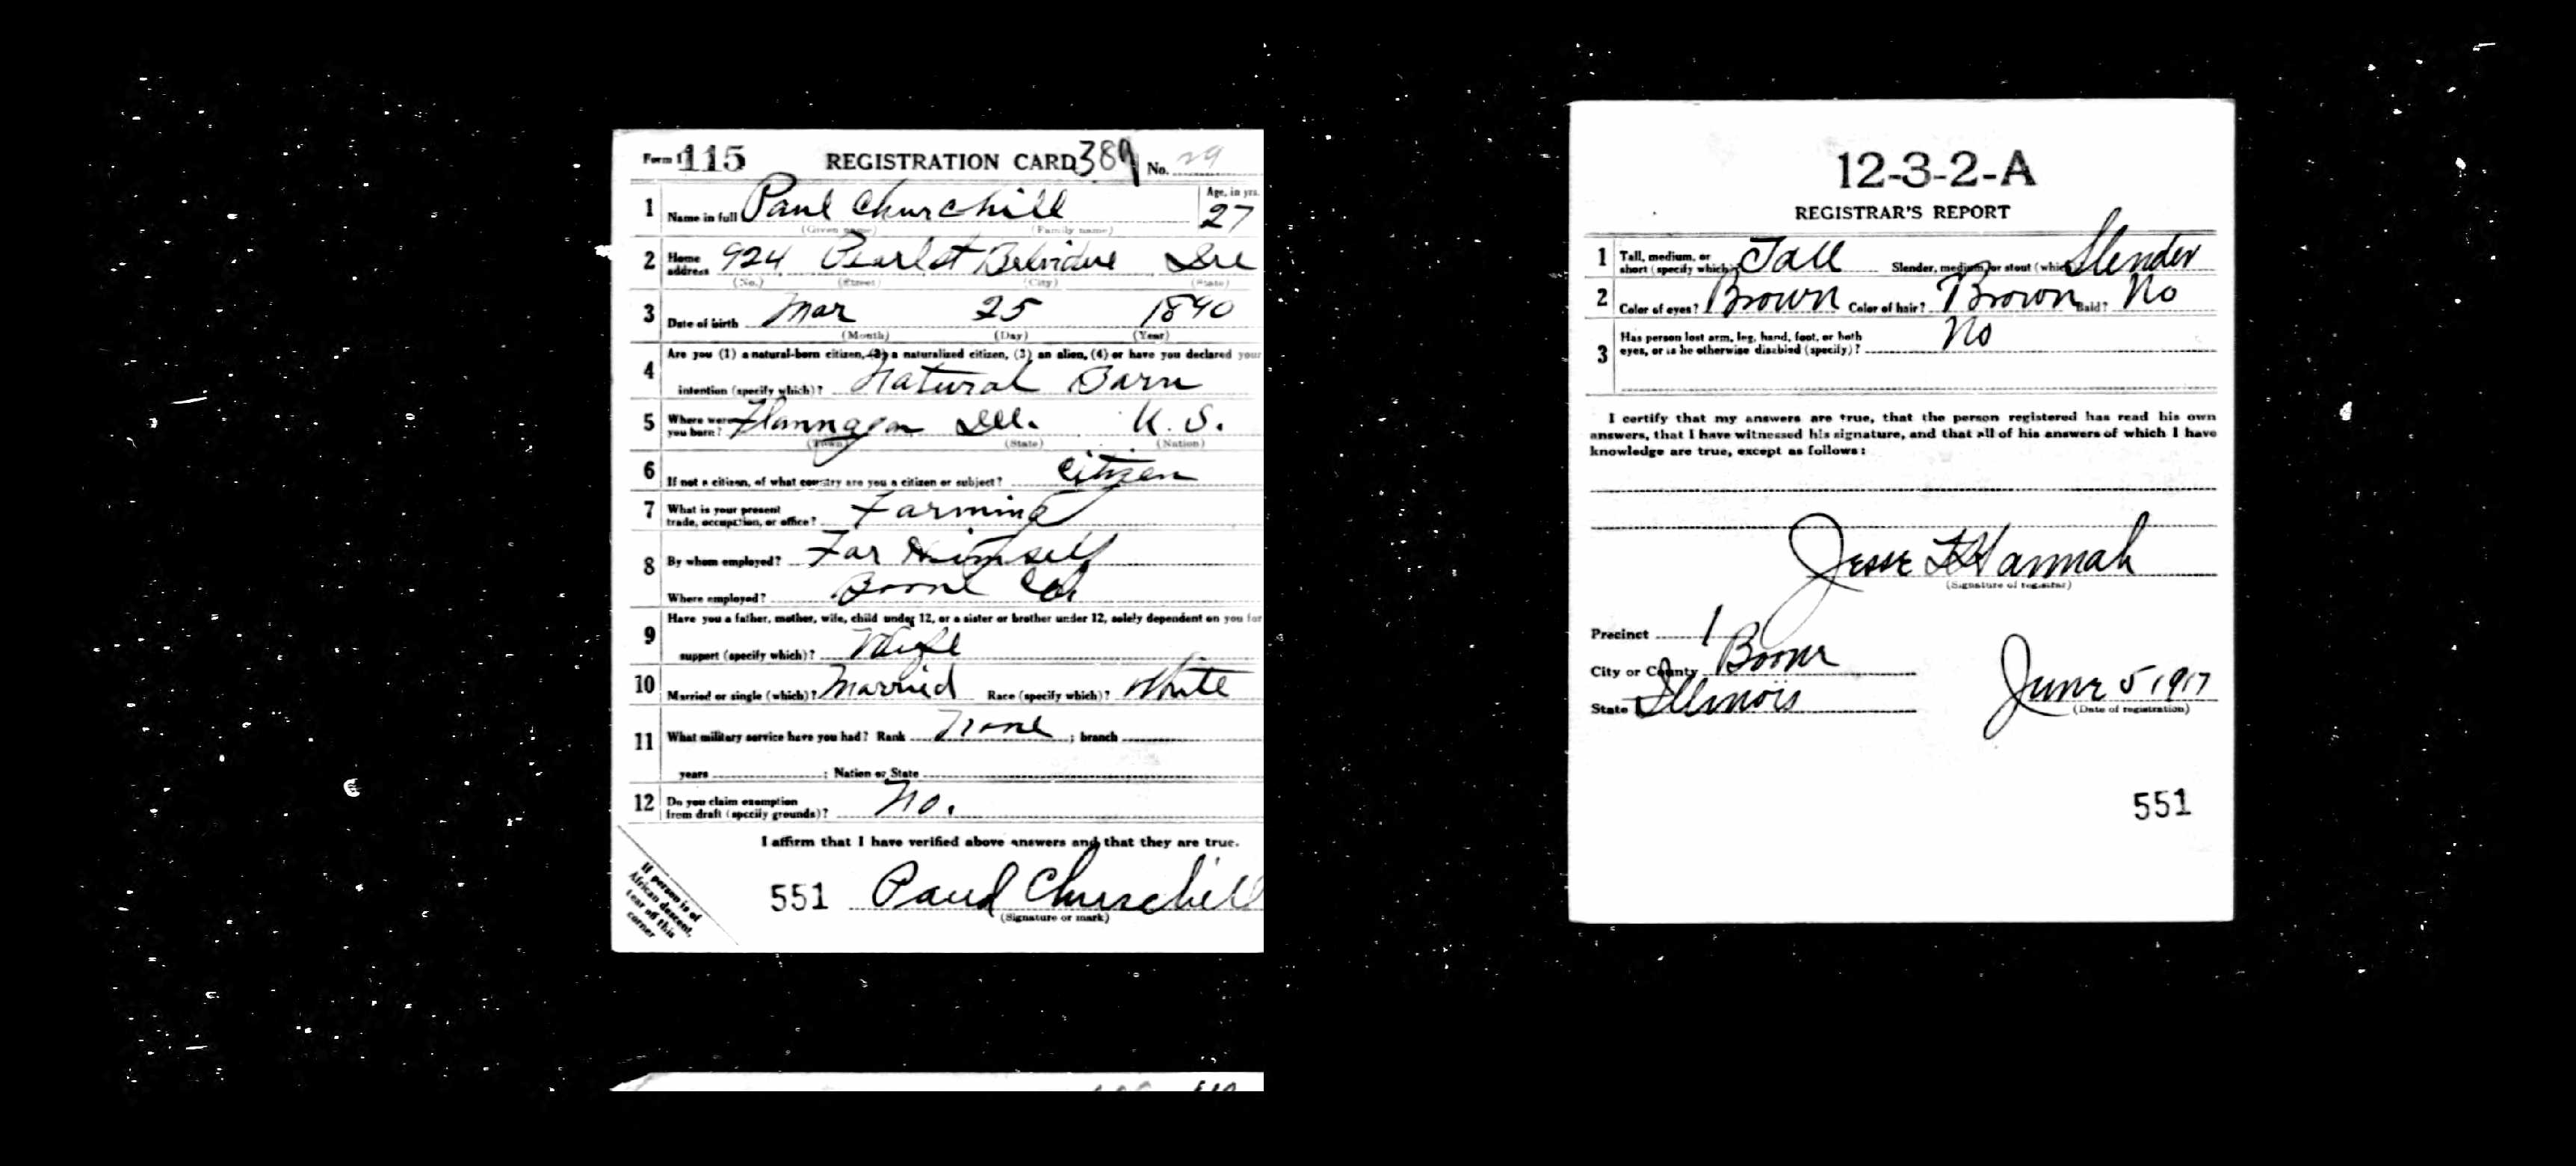 Form 1 115 REGISTRATION CARD 389 No. 29
1 Name in full Paul Churchill Age, in yrs. 27
(Given name) (Family name)
2 Home address 924 Pearl st Belvidere Ill
(No.) (Street) (City) (State)
3 Date of birth Mar 25 1890
(Month) (Day) (Year)
4 Are you (1) a natural-born citizen, (2) a naturalized citizen, (3) an alien, (4) or have you declared your
intention (specify which)? Natural Born
5 Where were you born? Flannagan Ill. U.S.
(Town) (State) (Nation)
6 If not a citizen, of what country are you a citizen or subject? Citizen
7 What is your present trade, occupation, or office? Farming
8 By whom employed? For Himself
Where employed? Boone Co
9 Have you a father, mother, wife, child under 12, or a sister or brother under 12, solely dependent on you for
support (specify which)? Wife
10 Married or single (which)? Married Race (specify which)? White
11 What military service have you had? Rank None ; branch
years ; Nation or State
12 Do you claim exemption from draft (specify grounds)? No.
I affirm that I have verified above answers and that they are true.
551 Paul Churchill
(Signature or mark)
If person is of
African descent,
tear off this
corner
12-3-2-A
REGISTRAR'S REPORT
1 Tall, medium, or short (specify which)? Tall Slender, medium, or stout (which)? Slender
2 Color of eyes? Brown Color of hair? Brown Bald? No
3 Has person lost arm, leg, hand, foot, or both
eyes, or is he otherwise disabled (specify)? No
I certify that my answers are true, that the person registered has read his own
answers, that I have witnessed his signature, and that all of his answers of which I have
knowledge are true, except as follows:
Jesse Hannah
(Signature of registrar)
Precinct 1
City or County Boone
State Illinois June 5 1917
(Date of registration)
551